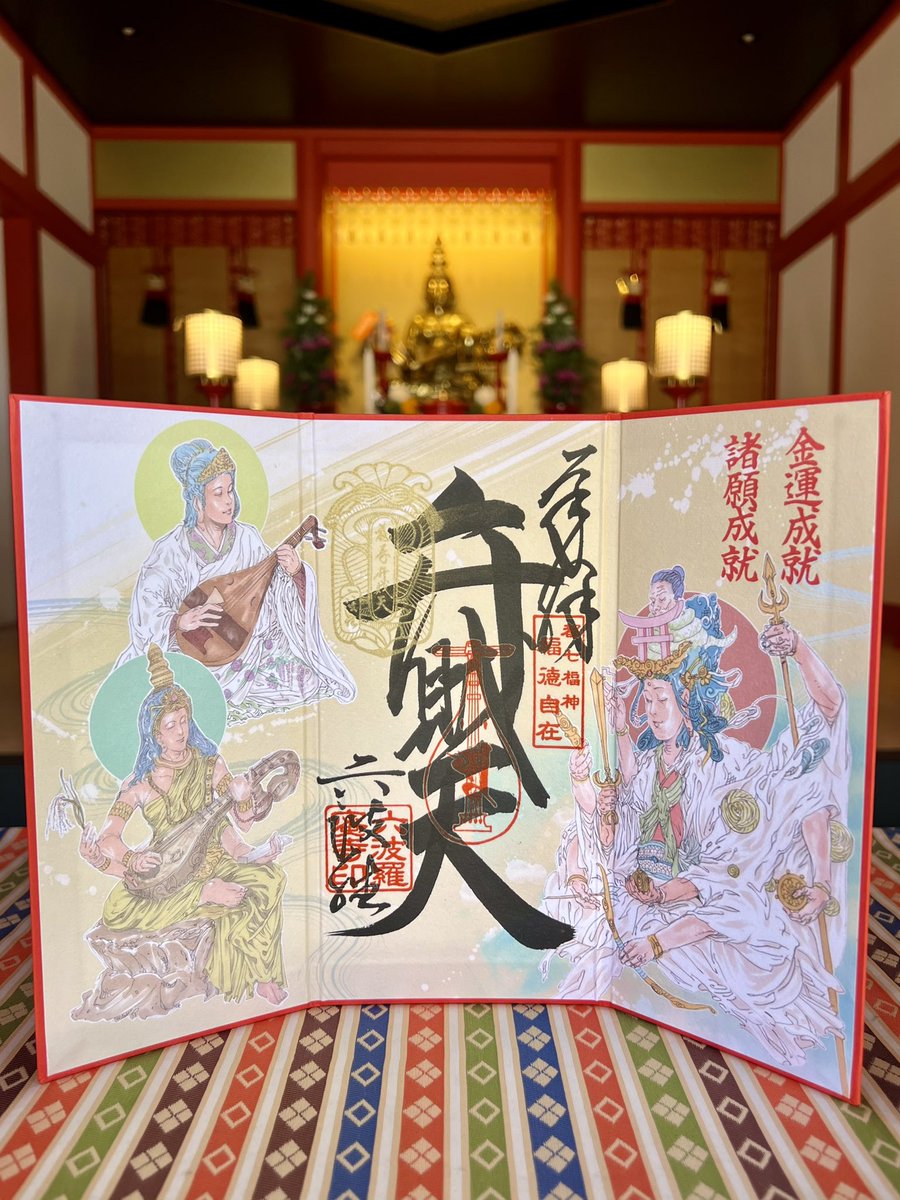 金運成就
諸願成就
奉拝
都七福神
福徳自在
弁財天
六波羅
六波羅
蜜寺印